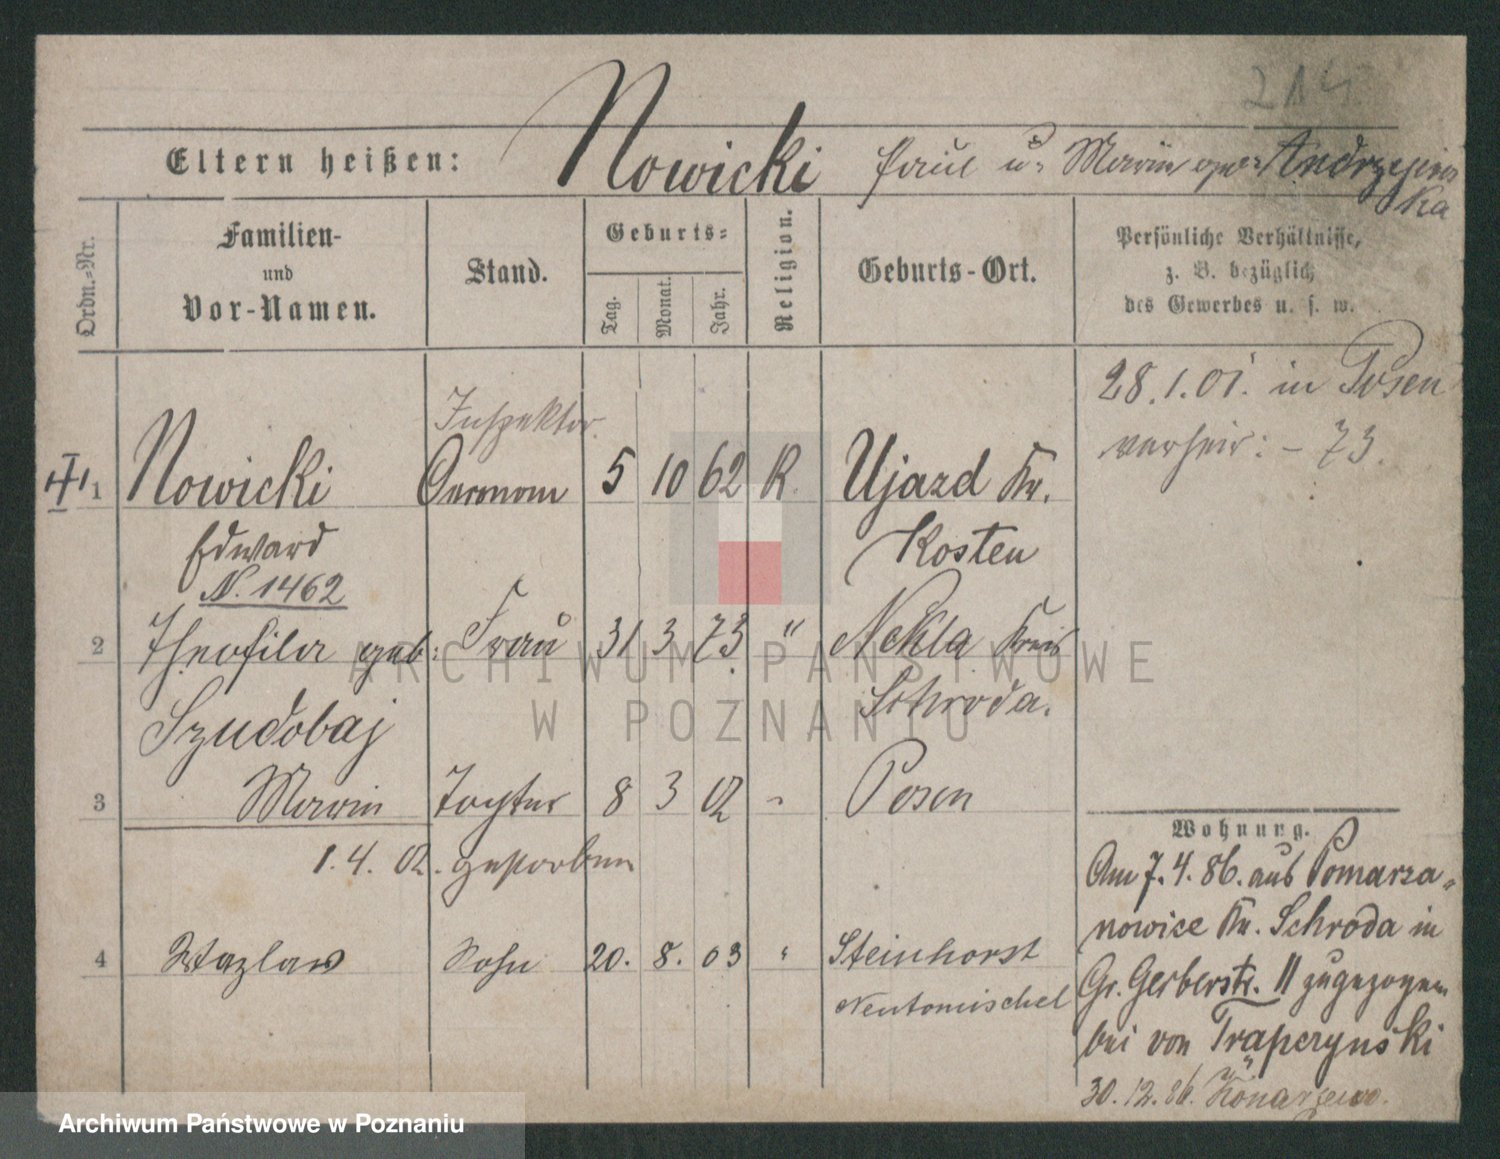 214
Eltern heißen: Nowicki Paul u. Maria geb. Andrzejews
ka
Ordn.-Nr.
Familien-
und
Vor-Namen.
Stand.
Geburts-
Tag.
Monat.
Jahr.
Religion.
Geburts-Ort.
Persönliche Verhältnisse,
z. B. bezüglich
des Gewerbes u. s. w.
28.1.01. in Posen
verheir: - 73.
Inspektor.
1 Nowicki Oeconom 5 10 62 K. Ujazd Kr.
Edward Kosten
N. 1462
2 Theofila geb: Frau 31 3 73 " Nekla Kreis
Szudobaj Schroda.
3 Maria Tochter 8 3 02 " Posen
1.4.02. gestorben
4 Wazlaw Sohn 20. 8. 03 " Steinhorst
Neutomischel
Wohnung.
Am 7.4.86. aus Pomarza-
nowice Kr. Schroda in
Gr. Gerberstr. 11 zugezogen
bei von Trąpczynski
30.12.86. Konarzewo.
ARCHIWUM PAŃSTWOWE
W POZNANIU
Archiwum Państwowe w Poznaniu